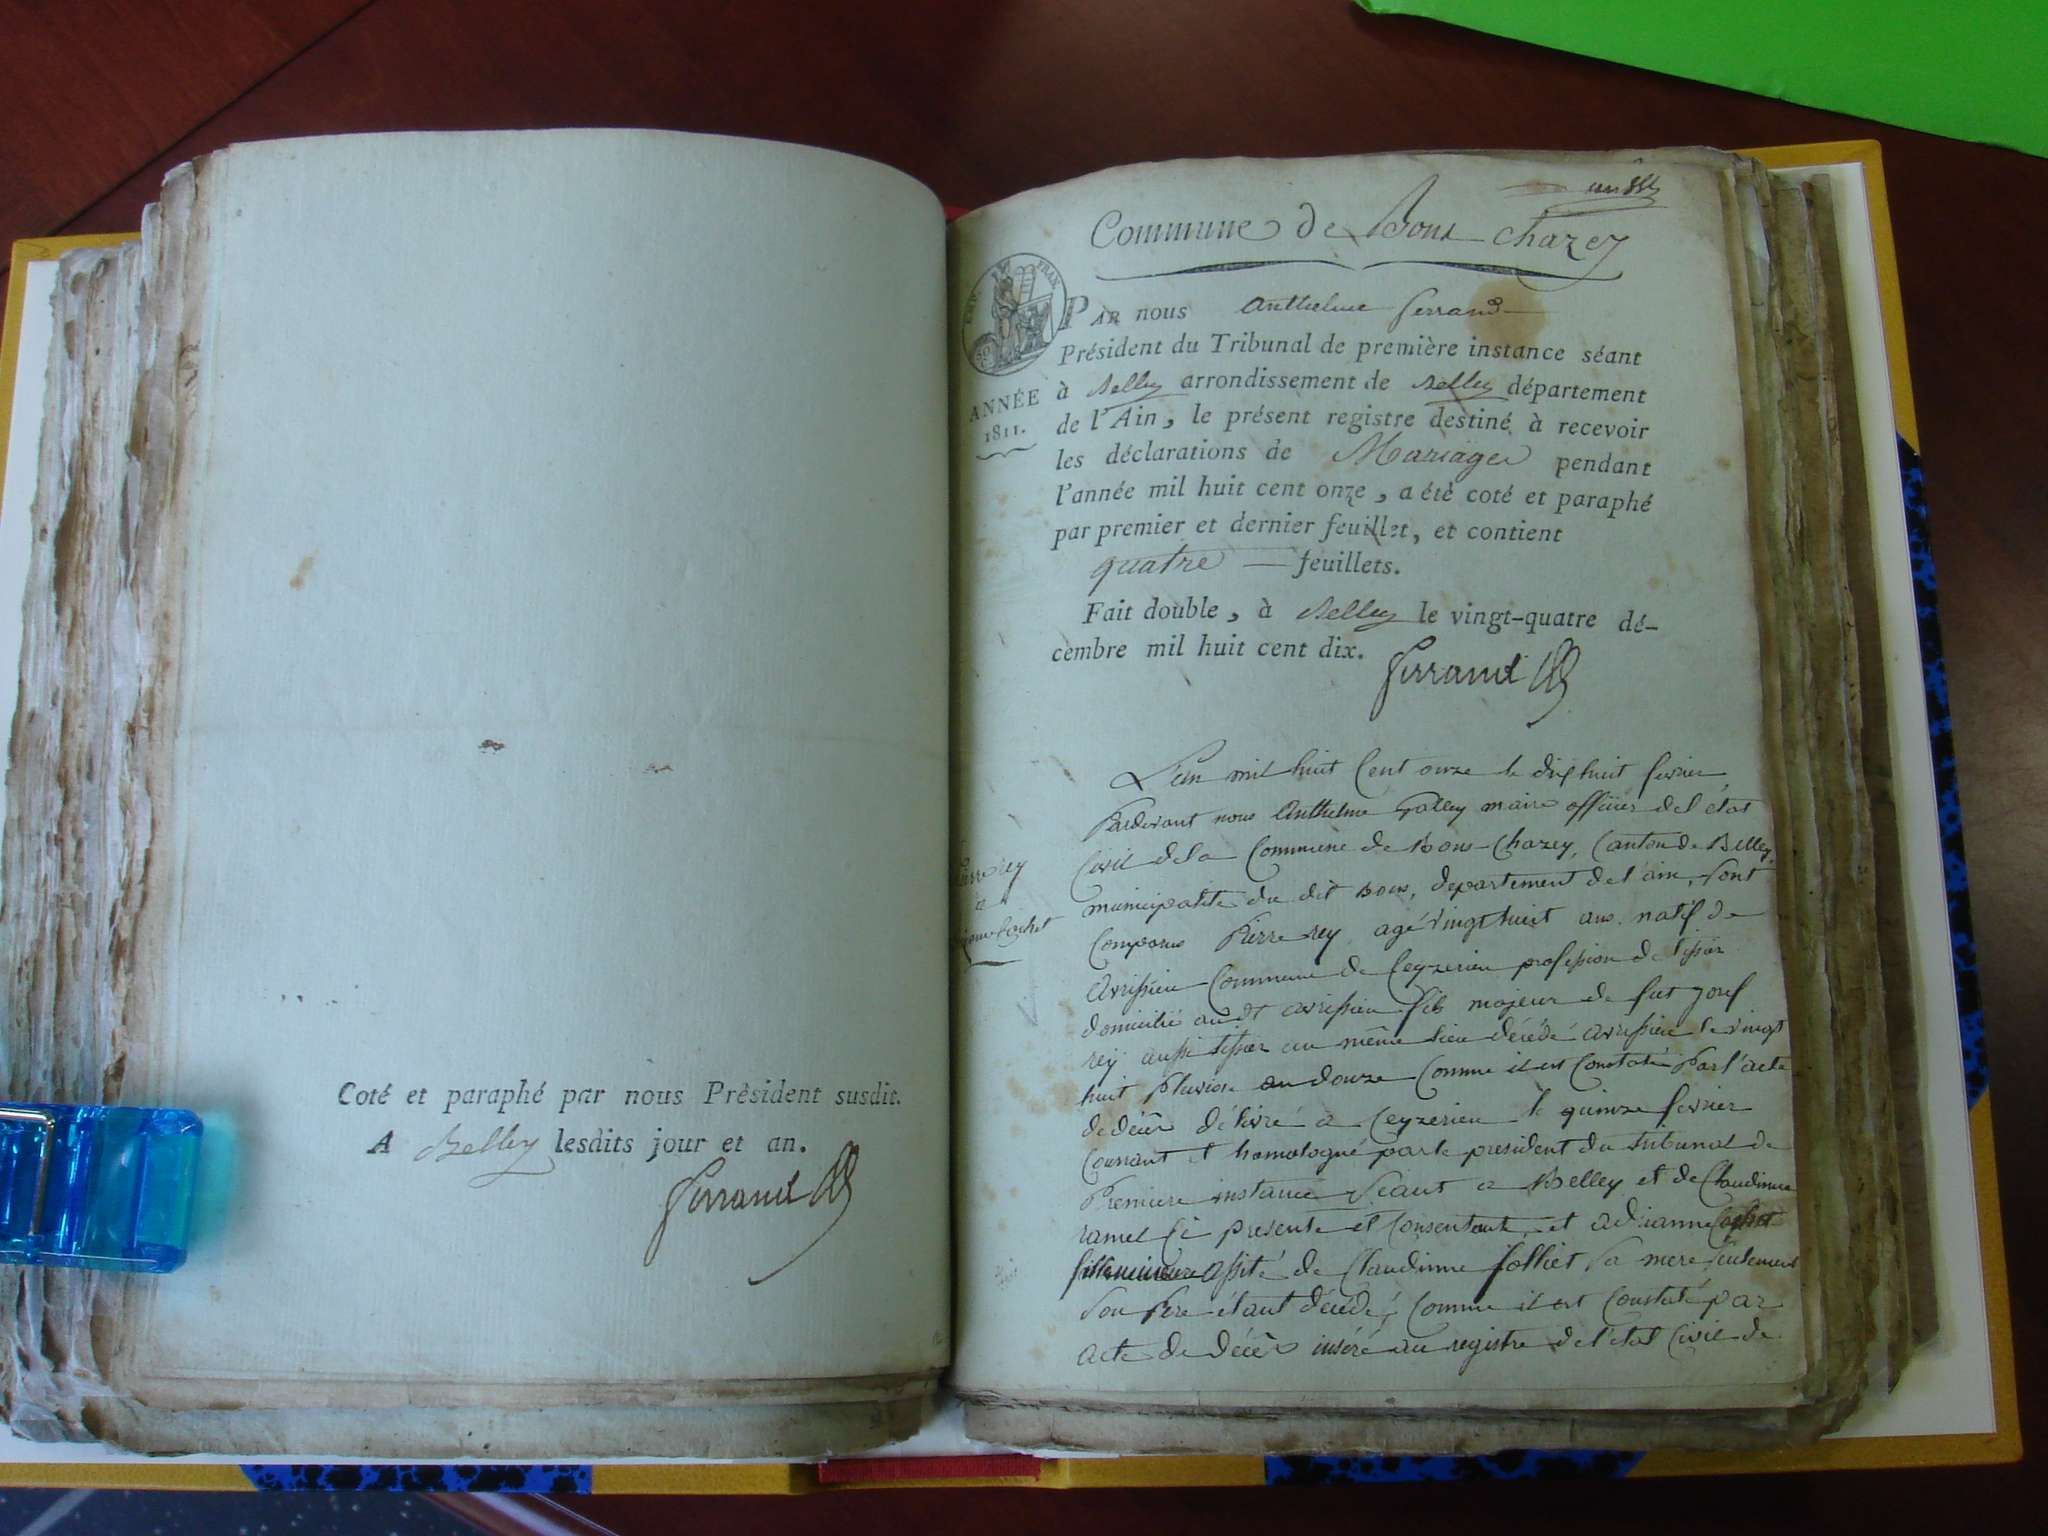 Coté et paraphé par nous Président susdit.
A Belley lesdits jour et an.
Ferrand
Commune de Bons chazey
PAR nous Anthelme ferrand
Président du Tribunal de première instance séant
à Belley arrondissement de Belley département
de l'Ain, le présent registre destiné à recevoir
les déclarations de Mariages pendant
l'année mil huit cent onze, a été coté et paraphé
par premier et dernier feuillet, et contient
quatre feuillets.
Fait double, à Belley le vingt-quatre dé-
cembre mil huit cent dix.
Ferrand
ANNÉE
1811.
FRAN.
Pierre rey
L'an mil huit Cent onze le dix huit fevrier
Pardevant nous Anthelme maire officier del état
Civil dela Commune de Bons-Chazey, Canton de Belley,
municipalité du dit Bons, departement de l'ain, Sont
Comparus Pierre rey agé vingt huit ans natif de
avrissieu Commune de Ceyzerieu profession de tissier
domicilié au dt avrissieu fils majeur de fut josef
rey aussi tissier au même lieu décédé avrissieu le vingt
huit Pluviose an douze Comme il est Constaté Par l'acte
de décès délivré a Ceyzerieu le quinze fevrier
Courrant et homologué par le president du tribunal de
Premiere instance Séant a Belley et de Claudinne
ramel Ci presente et Consentant, et adrianne Cochet
fille mineure assité de Claudinne folliet Sa mere seulement
Son Pere étant décédé, Comme il est Constaté par
acte de décès inséré au registre de l'etat Civil de